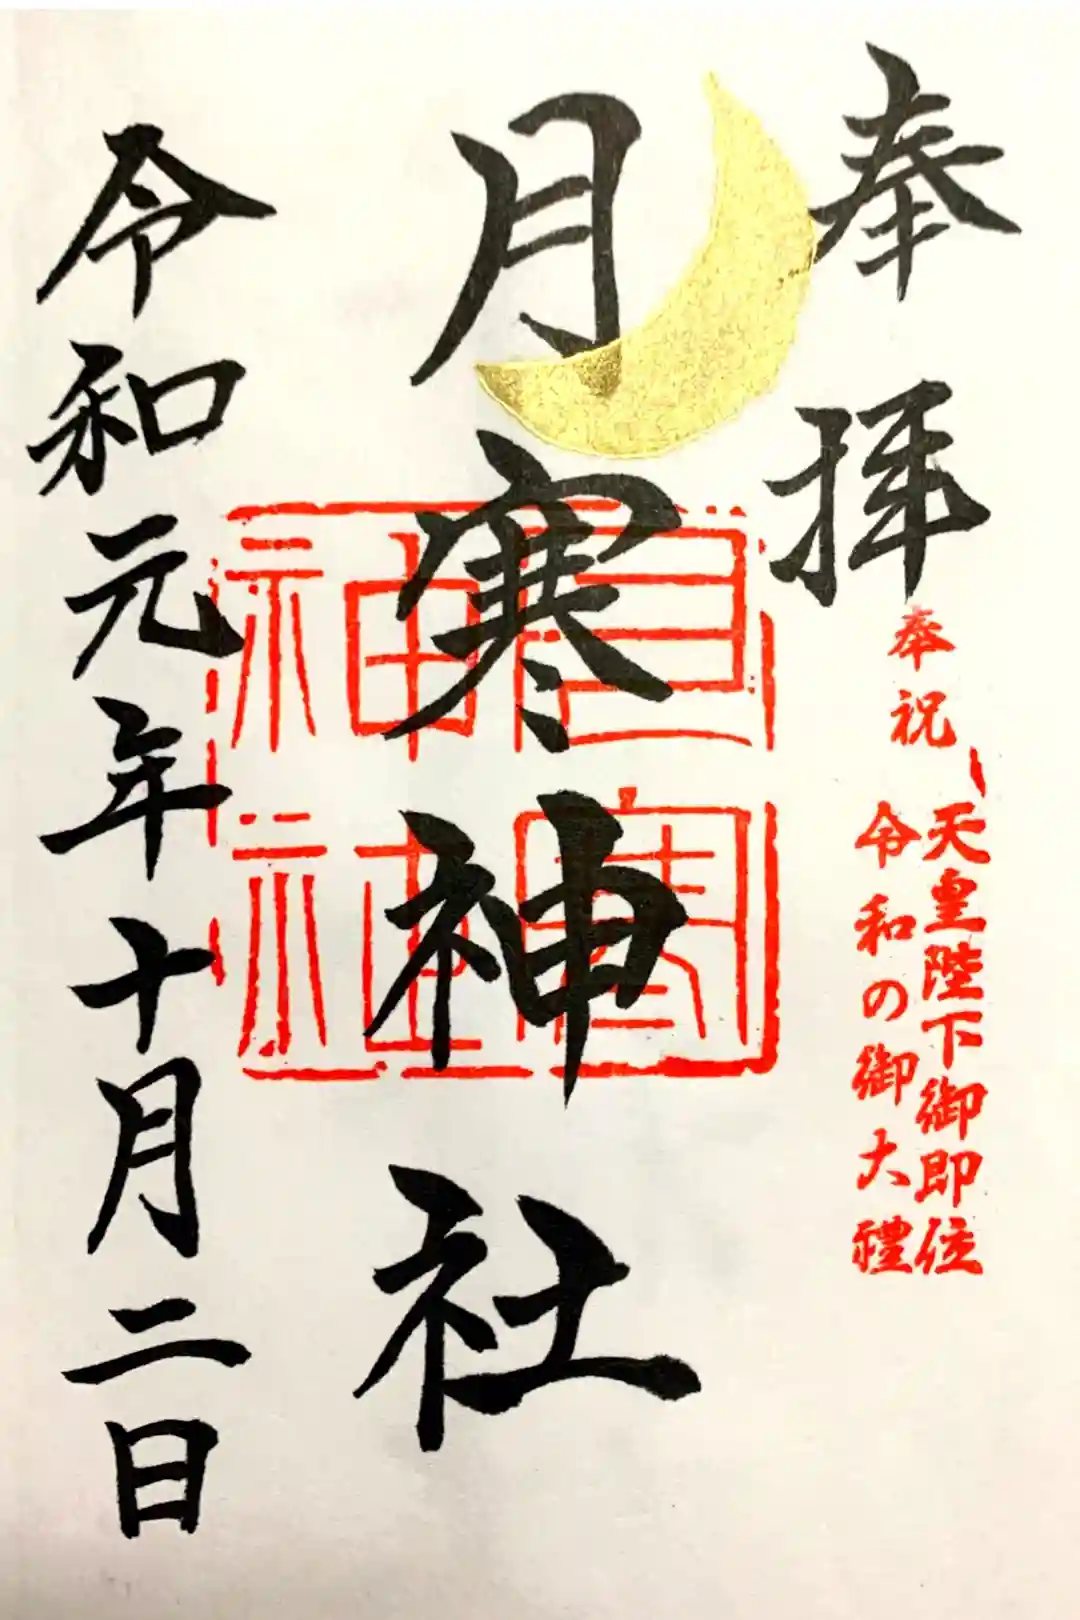 奉拝
奉祝
天皇陛下御即位
令和の御大禮
月寒神社
月寒神社
令和元年十月二日